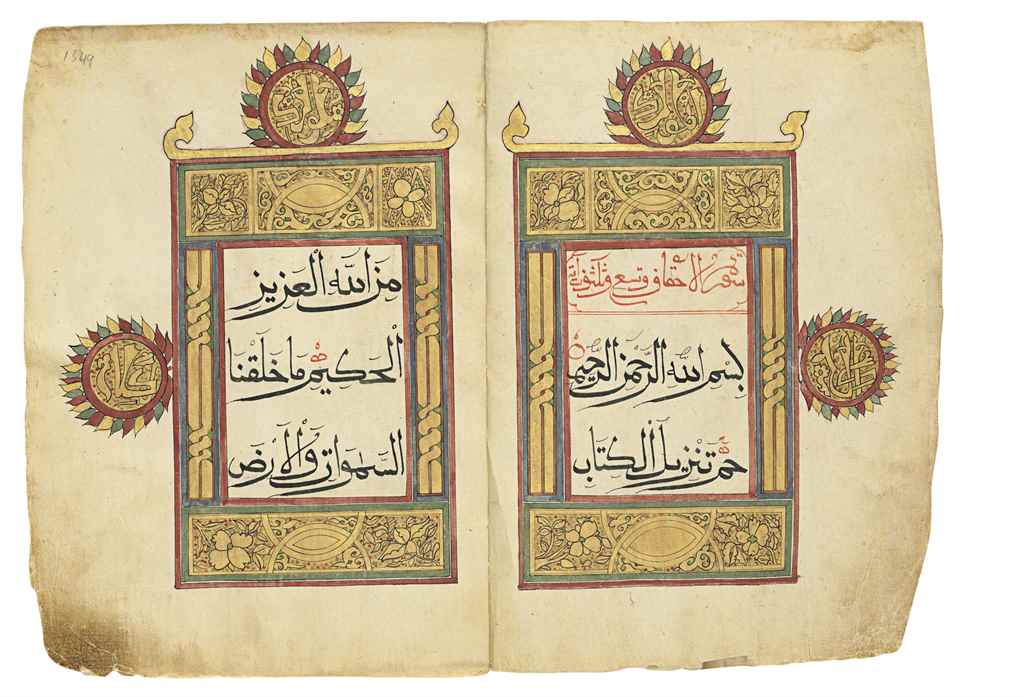 سورة الاحقاف وتسع وثلثون آية
بِسْمِ اللّٰهِ الرَّحْمٰنِ الرَّحِيْمِ
حٰمٓ تَنْزِيلُ الْكِتَابِ
مِنَ اللّٰهِ الْعَزِيزِ
الْحَكِيمِ مَا خَلَقْنَا
السَّمٰوَاتِ وَالْاَرْضَ
1349